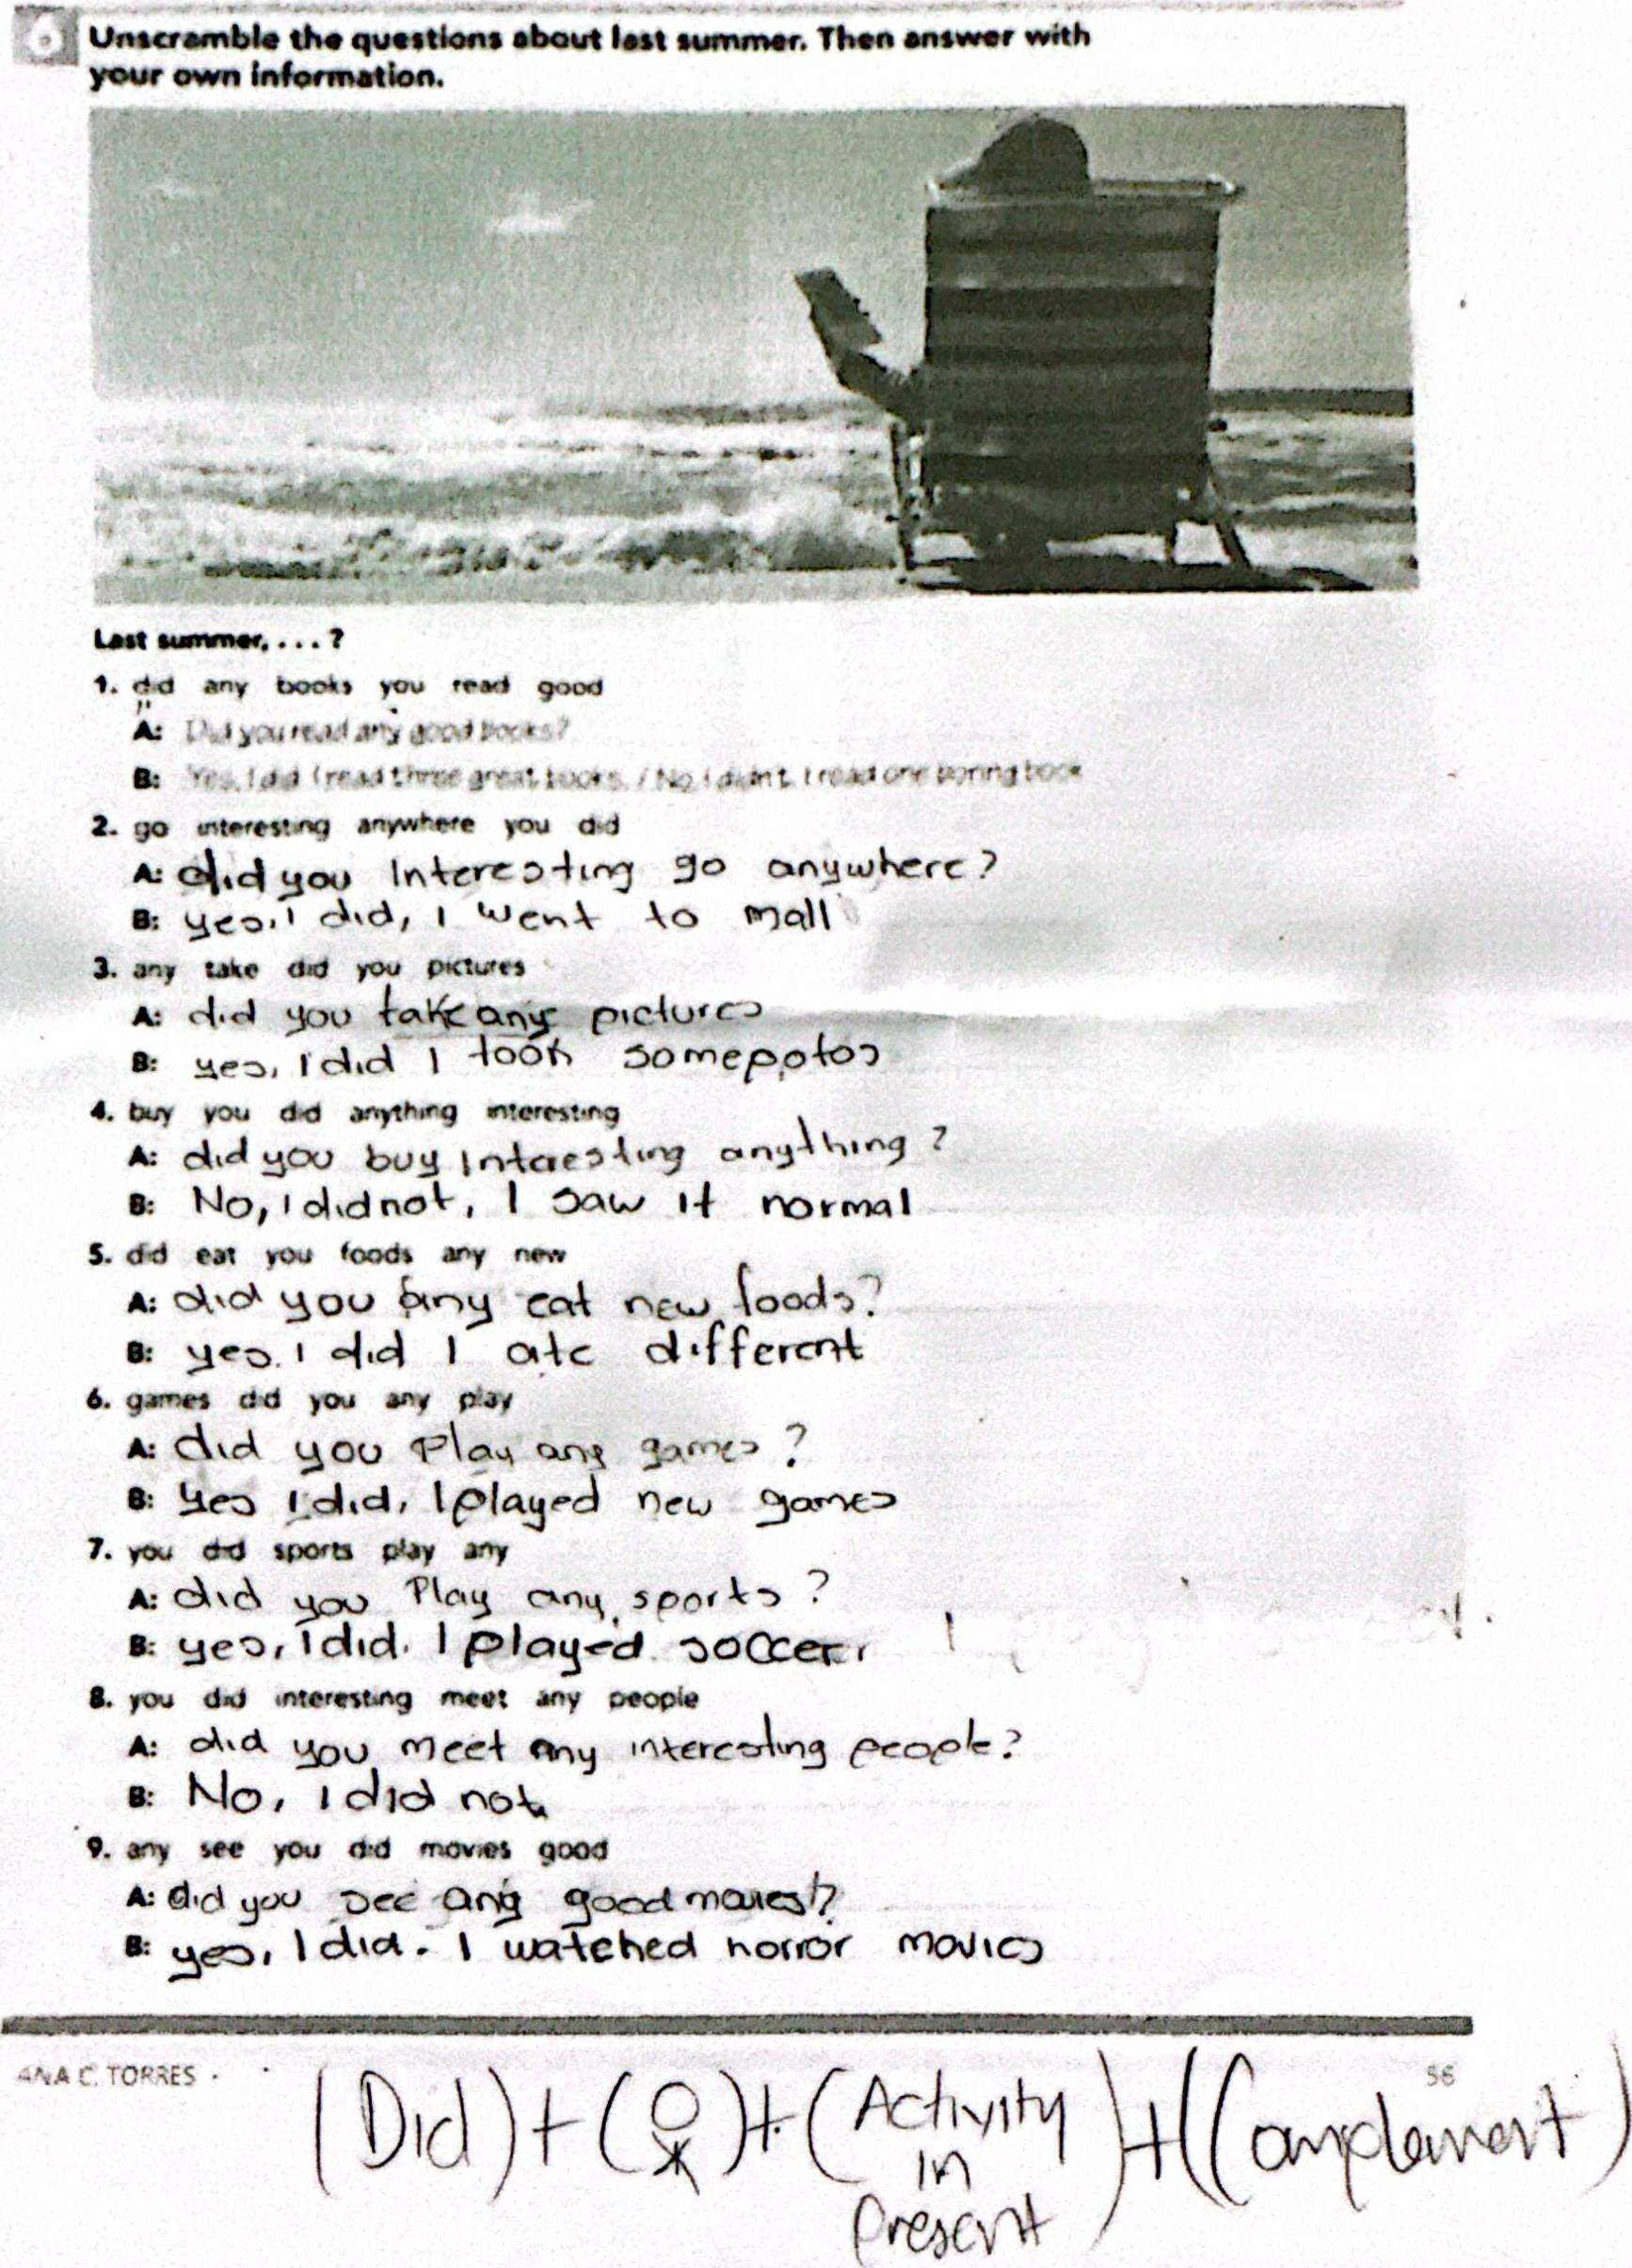 6 Unscramble the questions about last summer. Then answer with
your own information.
Last summer, . . . ?
1. did any books you read good
A: Did you read any good books?
B: Yes, I did I read three great books. / No, I didn't. I read one boring book
2. go interesting anywhere you did
A: did you Interesting go anywhere?
B: yes, I did, I went to mall
3. any take did you pictures
A: did you take any pictures
B: yes, I did I took some potos
4. buy you did anything interesting
A: did you buy Intaesting anything?
B: No, I did not, I saw it normal
5. did eat you foods any new
A: did you any eat new foods?
B: yes. I did I ate different
6. games did you any play
A: did you Play any games?
B: Yes I did, I played new games
7. you did sports play any
A: did you Play any sports?
B: yes, I did. I played soccer.
8. you did interesting meet any people
A: did you meet any interesting people?
B: No, I did not.
9. any see you did movies good
A: did you see any good movies?
B: yes, I did. I watched horror movies
ANA C. TORRES
56
(Did) + ( ) + (Activity in Present) + (Complement)